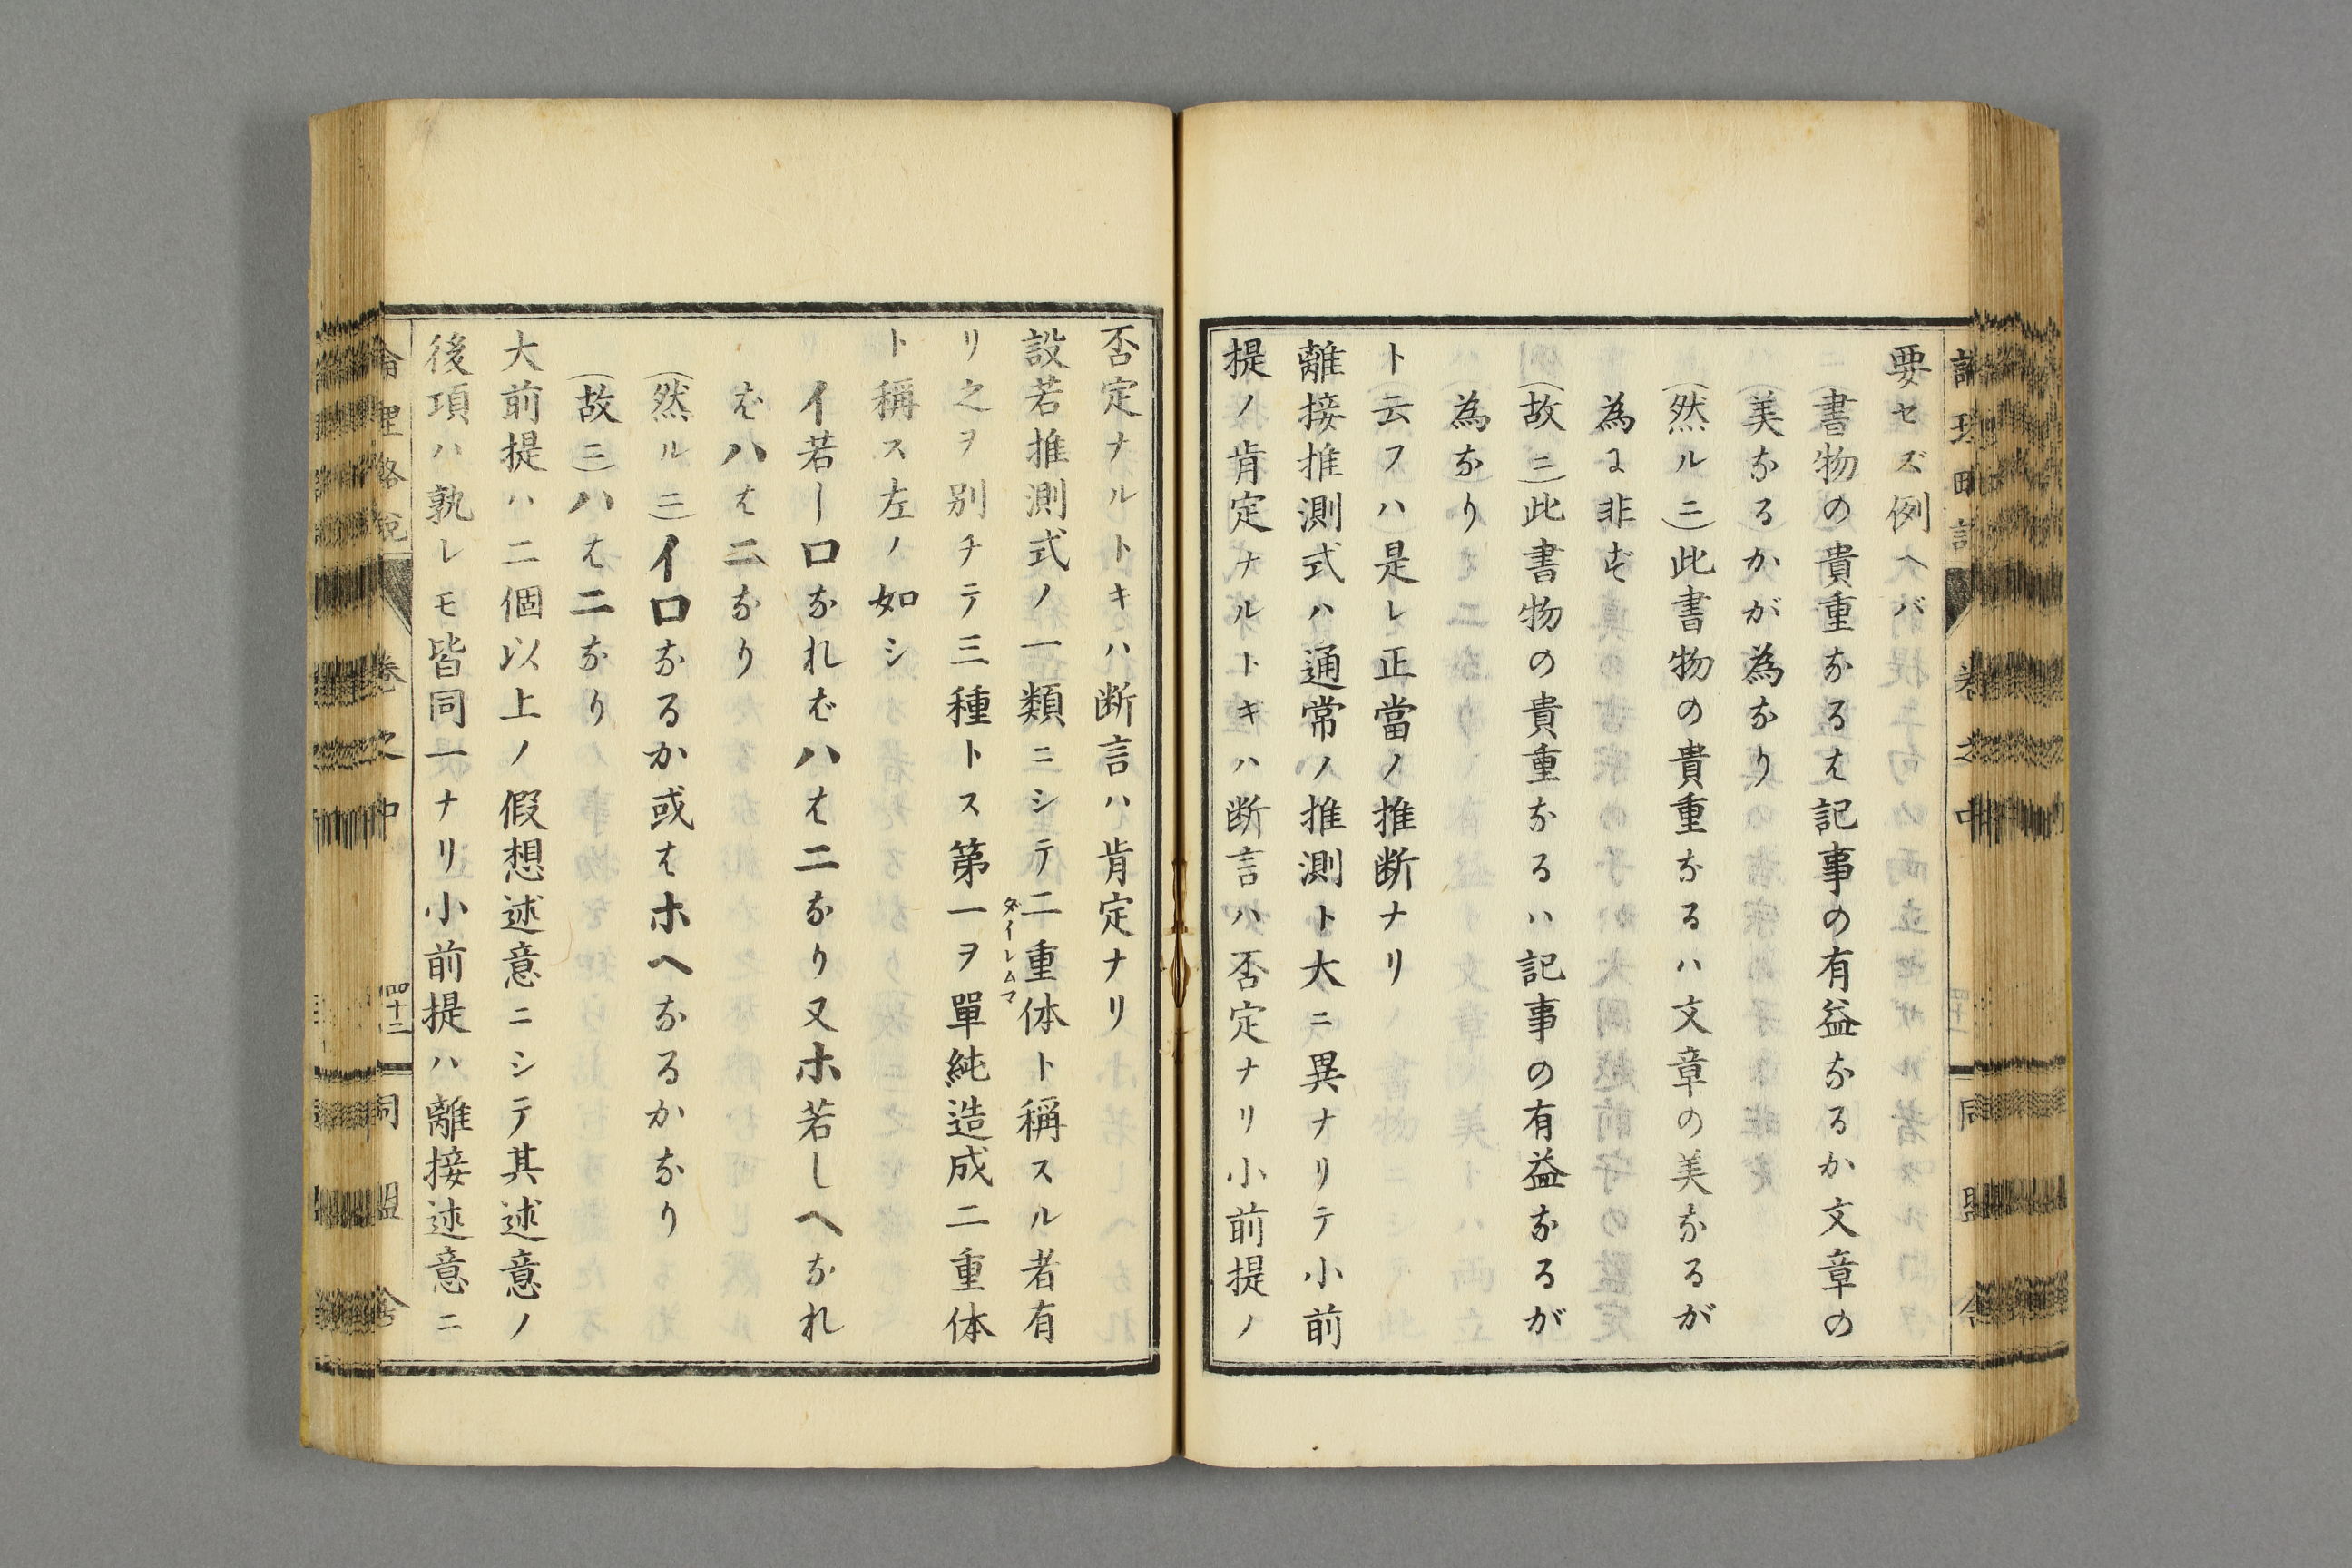 要セズ例ヘバ
書物の貴重なるは記事の有益なるか文章の
(美なる)かが為なり
(然ルニ)此書物の貴重なるハ文章の美なるが
為に非ず
(故ニ)此書物の貴重なるハ記事の有益なるが
為なり
ト云フハ是レ正當ノ推断ナリ
離接推測式ハ通常ノ推測ト大ニ異ナリテ小前
提ノ肯定ナルトキハ断言ハ否定ナリ小前提ノ
否定ナルトキハ断言ハ肯定ナリ
設若推測式ノ一類ニシテ二重体ト稱スル者有
ダイレムマ
リ之ヲ別チテ三種トス第一ヲ單純造成二重体
ト稱ス左ノ如シ
イ若しロなればハはニなり又ホ若しヘなれ
ばハはニなり
(然ルニ)イロなるか或はホヘなるかなり
(故ニ)ハはニなり
大前提ハ二個以上ノ假想述意ニシテ其述意ノ
後項ハ孰レモ皆同一ナリ小前提ハ離接述意ニ
卷之中
四十二
同盟舎